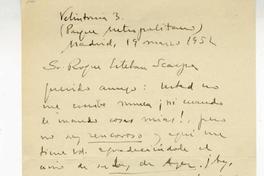 Velintonia 3.
(Parque Metropolitano)
Madrid, 19 marzo 1952
Sr. Roque Esteban Scarpa
Querido amigo: Usted no
me escribe nunca ¡ni cuando
le mando cosas mías!, pero
no soy rencoroso y aquí me
tiene Vd. agradeciéndole el
envío de